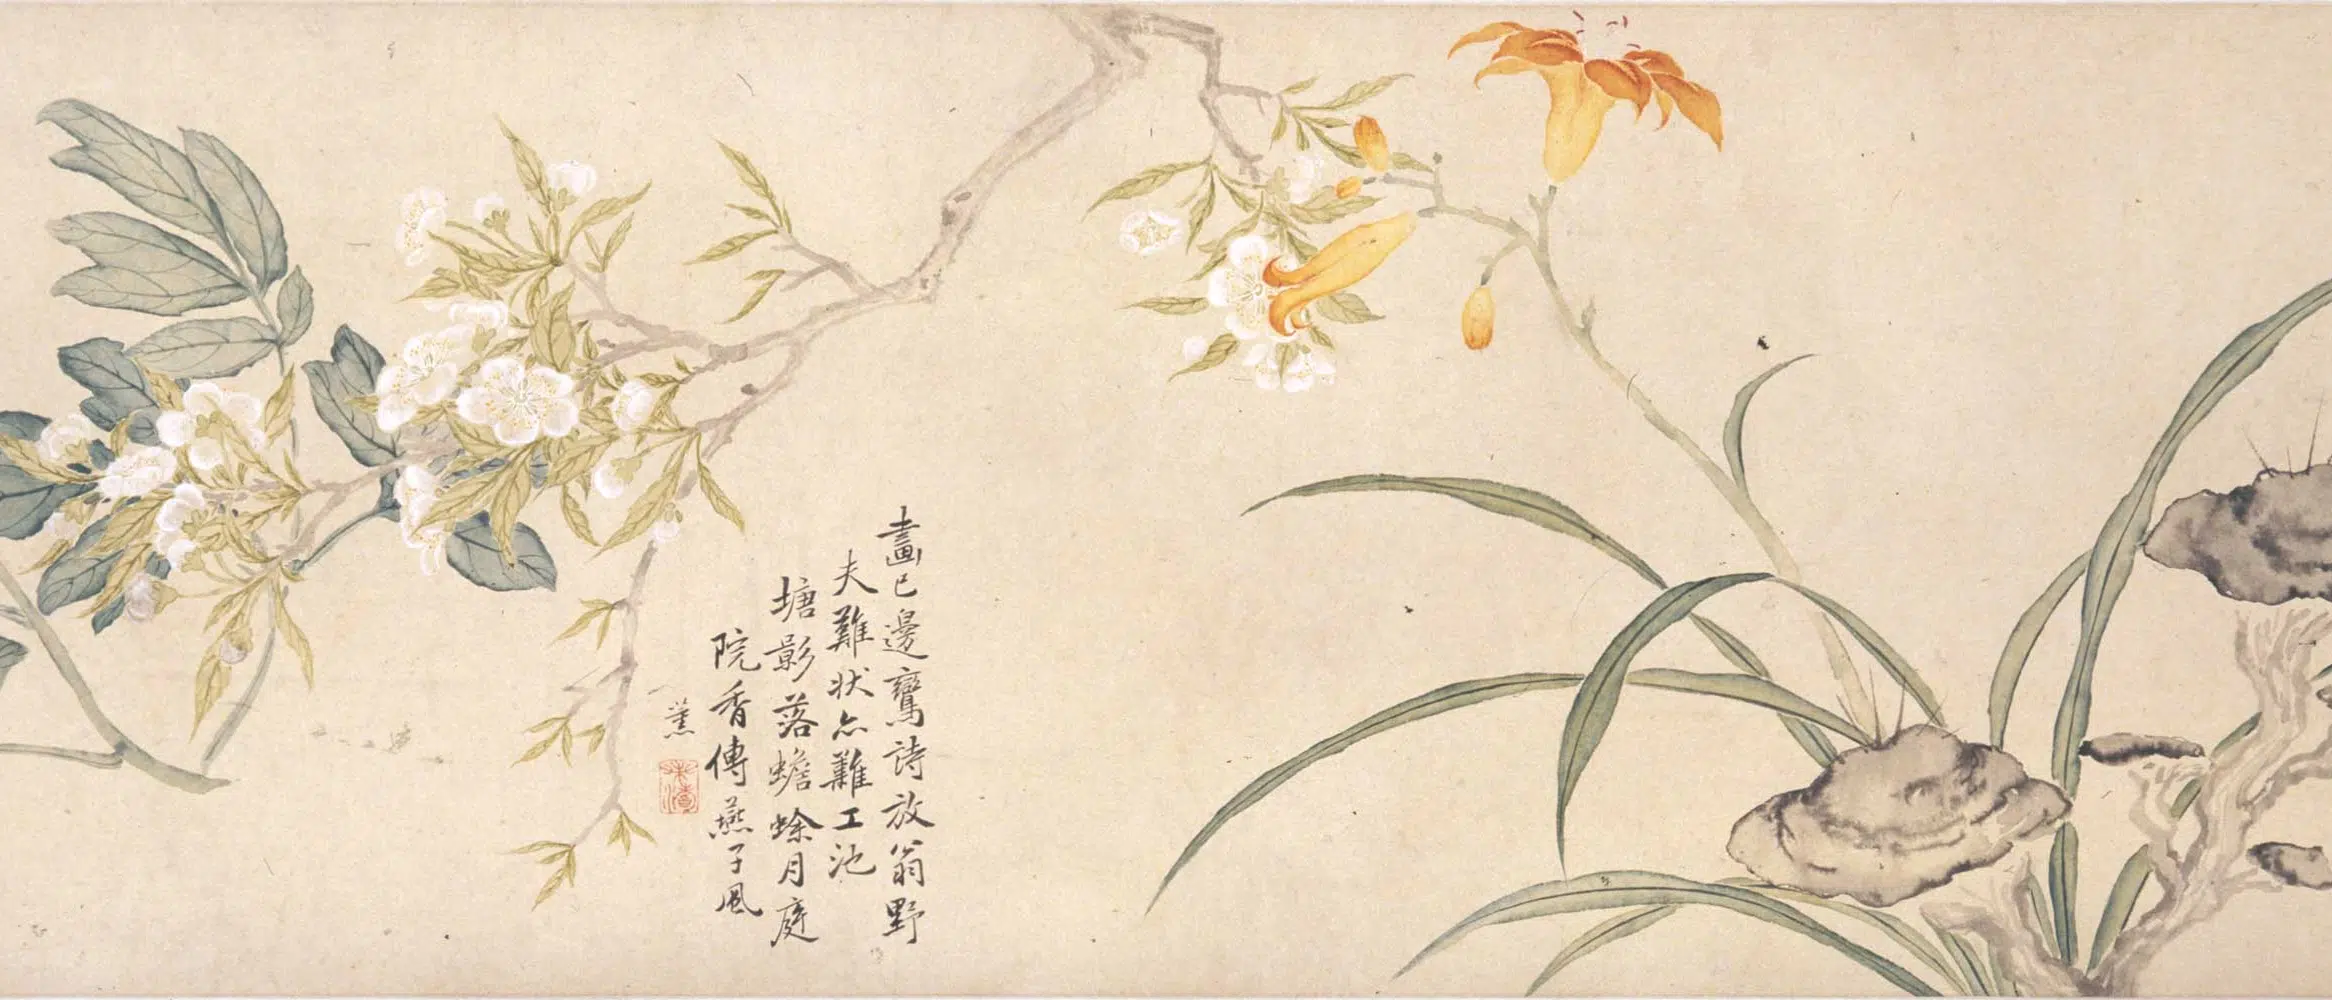 畫已邊鸞詩放翁野
夫難状亦難工池
塘影落蟾蜍月庭
院香傳燕子風
薰